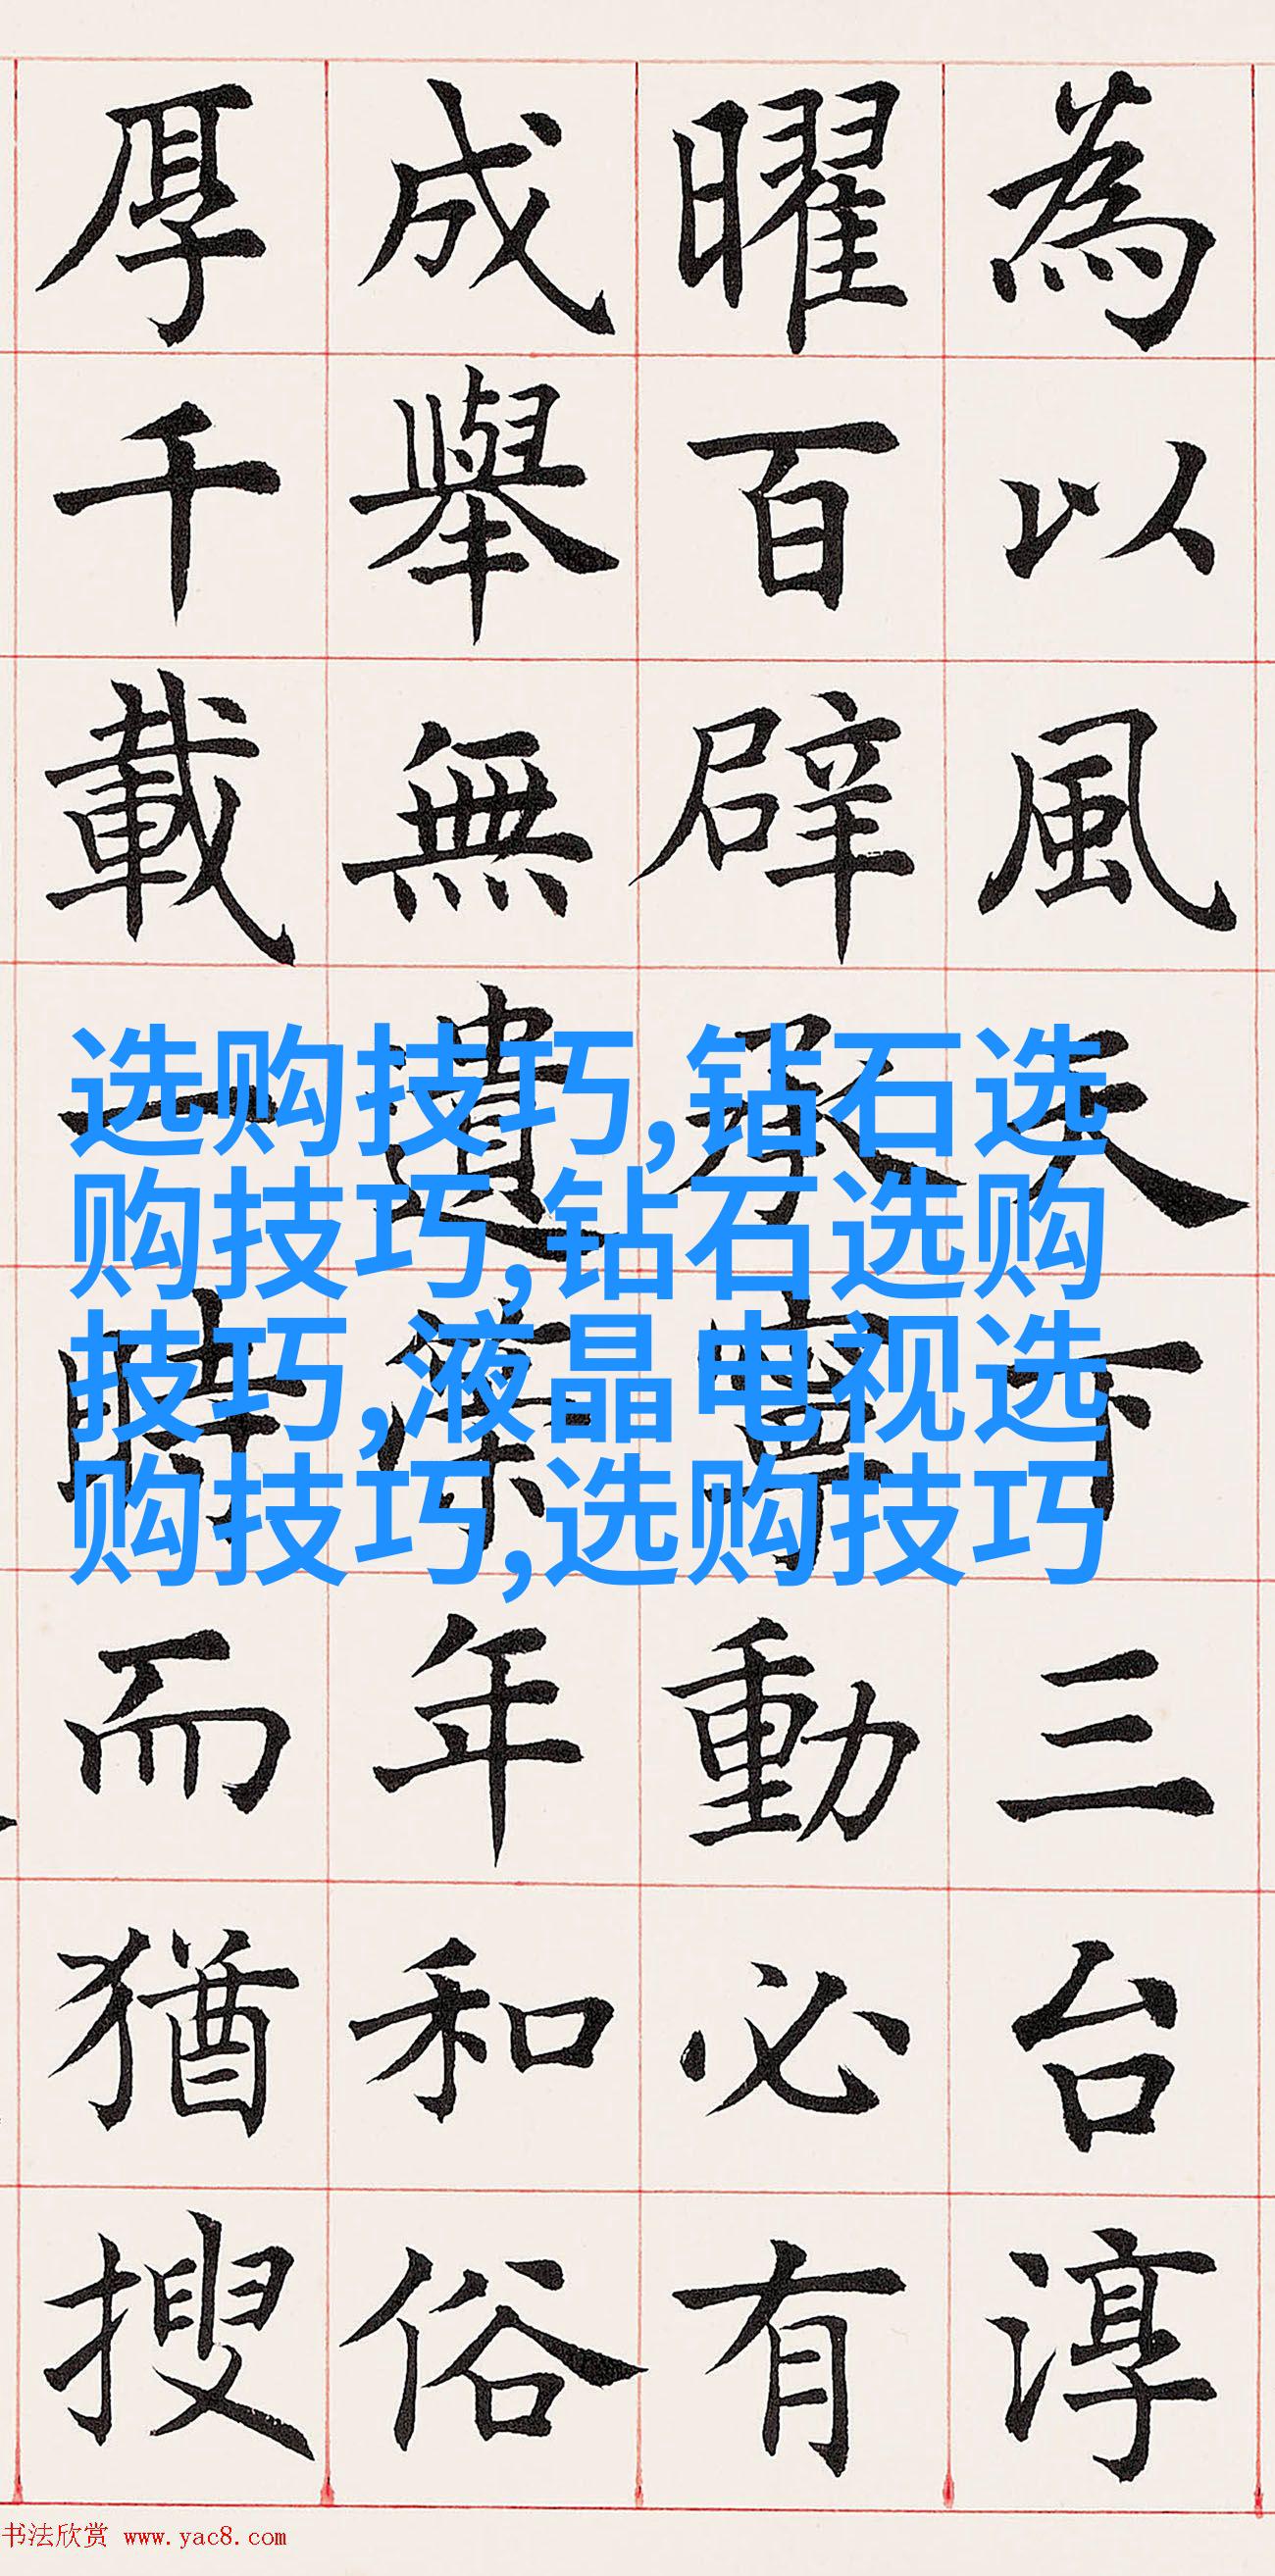 為以風天下三台淳
曜百辟承動必有
成舉無遺策年和俗
厚千載一時而猶搜
选购技巧,钻石选
购技巧,钻石选购
技巧,液晶电视选
购技巧,选购技巧
书法欣赏 www.yac8.com